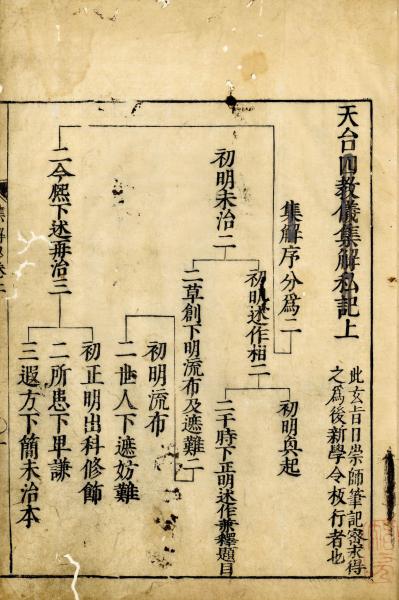 天台四教儀集解私記上
此玄旨日崇師筆記密求得
之爲後新學令板行者也
集解序分爲二
初明未治二
初明述作相二
初明興起
二于時下正明述作兼釋題目
二草創下明流布及遮難二
初明流布
二世人下遮妨難
二今熈下述再治三
初正明出科修飾
二所患下卑謙
三遐方下簡未治本